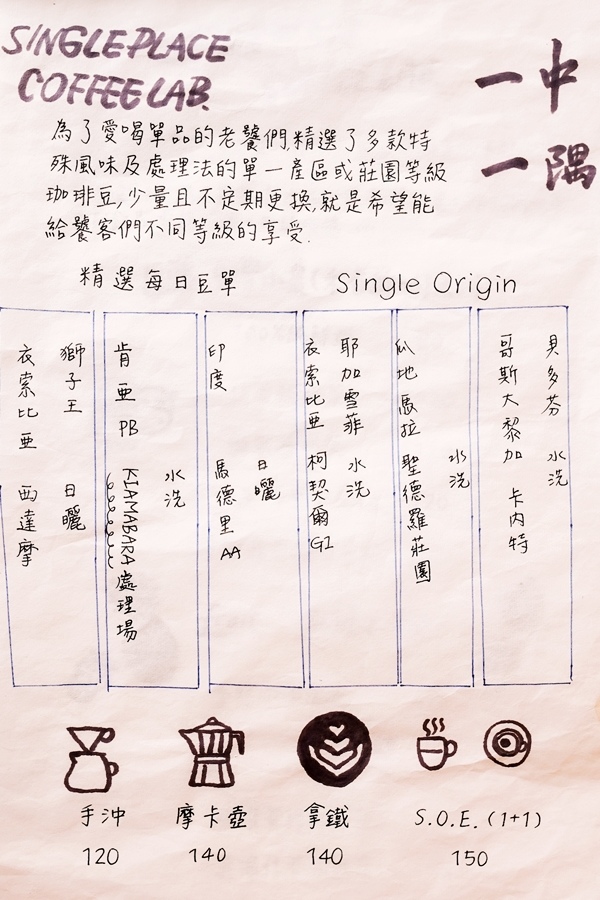 SINGLE PLACE
COFFEE LAB.
一中
一隅
為了愛喝單品的老饕們,精選了多款特
殊風味及處理法的單一產區或莊園等級
珈琲豆,少量且不定期更換,就是希望能
給饕客們不同等級的享受.
精選每日豆單
Single Origin
貝多芬 水洗
哥斯大黎加 卡內特
水洗
瓜地馬拉 聖德羅莊園
耶加雪菲 水洗
衣索比亞 柯契爾G1
日曬
印度 馬德里AA
水洗
肯亞PB KIAMABARA處理場
獅子王 日曬
衣索比亞 西達摩
手沖
摩卡壺
拿鐵
S.O.E.(1+1)
120
140
140
150